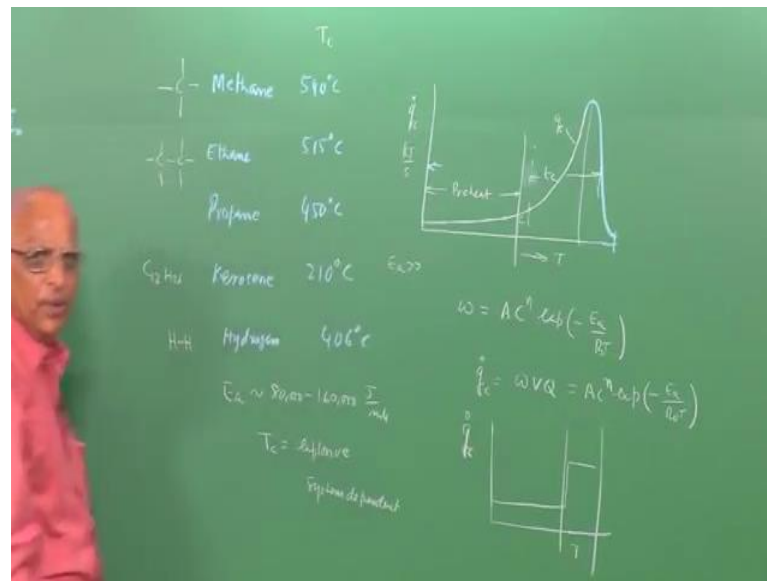 Tc
-C- Methane 540°C
-C-C- Ethane 515°C
Propane 450°C
Kerosene 210°C
H-H Hydrogen 406°C
Ea ~ 80,000-160,000 J/mole
Tc = explosive
System dependent
q̇c
kJ/s
Preheat
q̇c
tc
→ T
Ea >>
ω = AC^n exp(-Ea/R0T)
q̇c = ωVQ = AC^n exp(-Ea/R0T)
q̇c
T